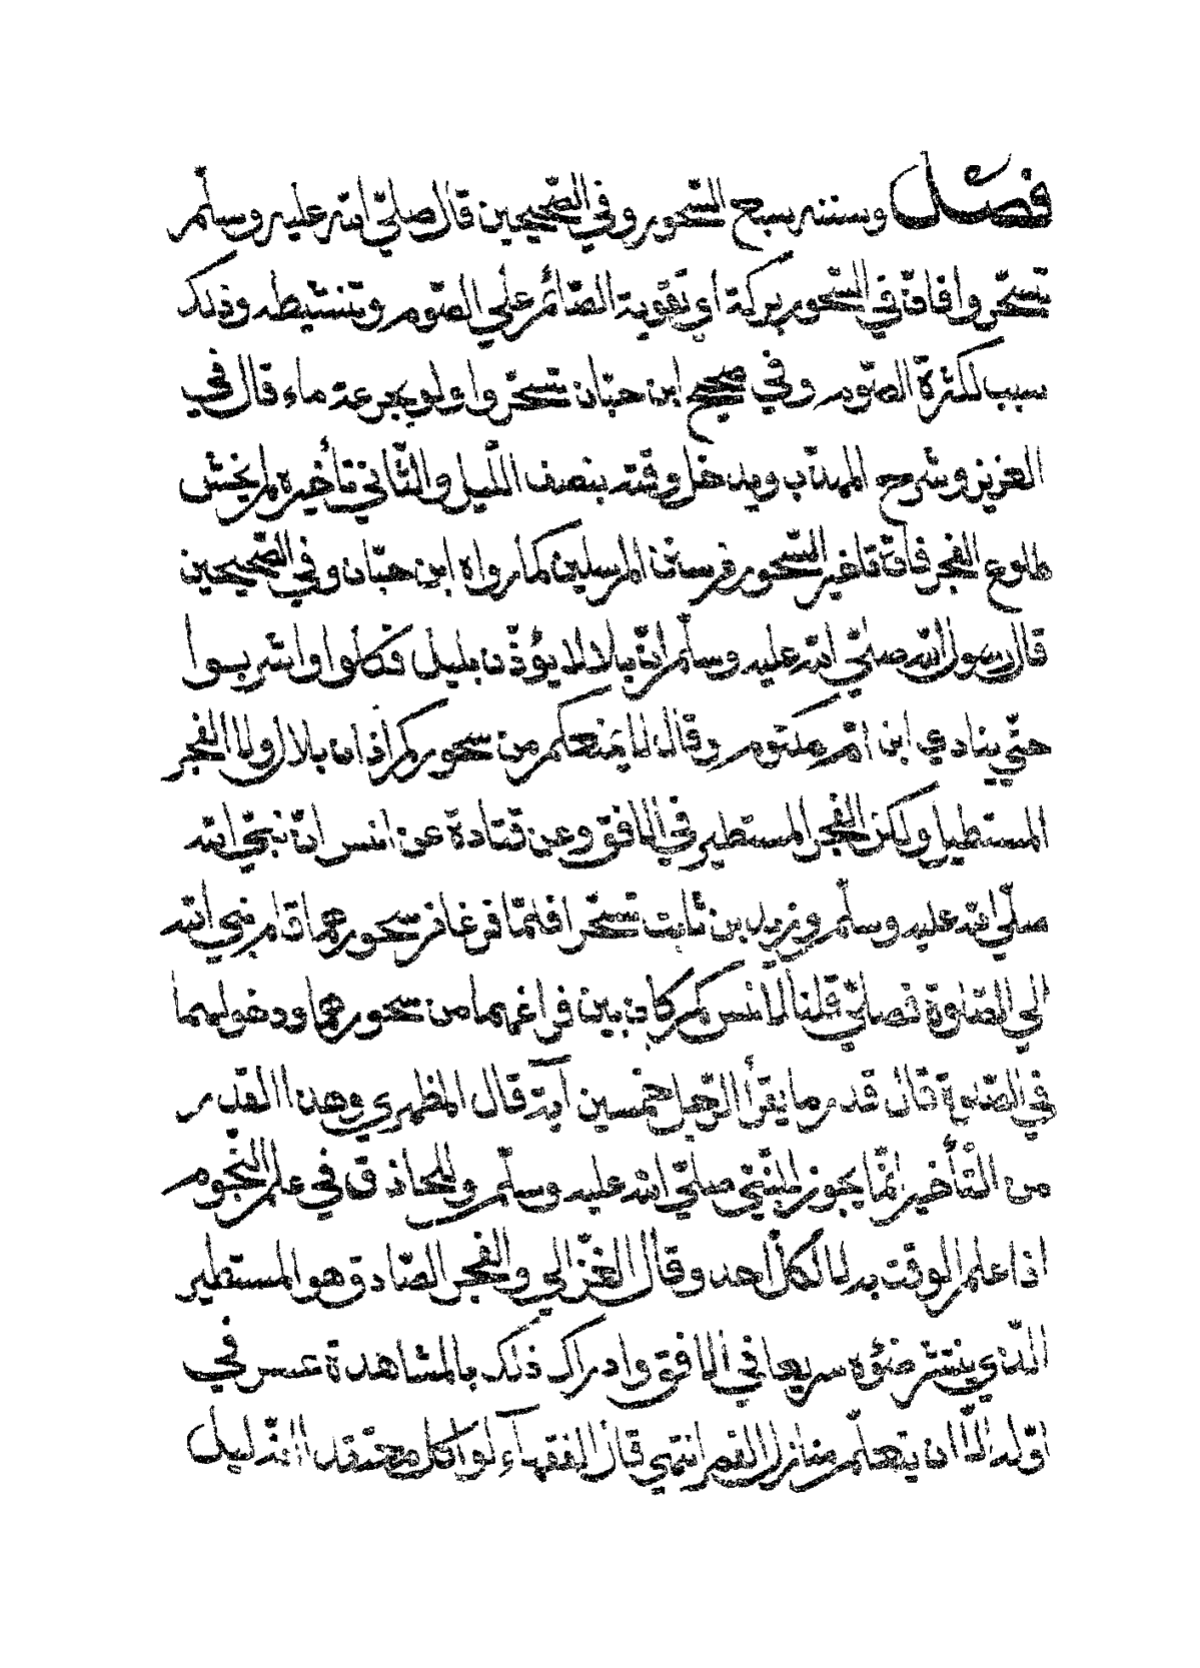 فصل وسننه سبع السّحور وفي الصّحيحين قال صلّي الله عليه وسلّم
تسحّروا فانّ في السّحور بركة اي تقوية الصّائم علي الصّوم وتنشيطه وذلك
سبب لكثرة الصّوم وفي صحيح ابن حبّان تسحّروا ولو بجرعة ماء قال في
العزيز وشرح المهذّب ويدخل وقته بنصف اللّيل والثّاني تأخيره لم يخش
طلوع الفجر فانّ تاخير السّحور من سنن المرسلين كما رواه ابن حبّان وفي الصّحيحين
قال رسول الله صلّي الله عليه وسلّم انّ بلالا يؤذّن بليل فكلوا واشربوا
حتّي ينادي ابن امّ مكتوم وقال لا يمنعكم من سحوركم اذان بلال ولا الفجر
المستطيل ولكن الفجر المستطير في الافق وعن قتادة عن انس انّ نبيّ الله
صلّي الله عليه وسلّم وزيد بن ثابت تسحّرا فلمّا فرغا من سحورهما قام نبي الله
الي الصّلوة فصلّي قلنا لانس كم كان بين فراغهما من سحورهما ودخولهما
في الصّلوة قال قدر ما يقرأ الرّجل خمسين آية قال المظهري وهذا القدر
من التّأخير انّما يجوز للنّبيّ صلّي الله عليه وسلّم وللحاذق في علم النّجوم
اذا علم الوقت به لا لكلّ احد وقال الغزّالي والفجر الصّادق هو المستطير
الّذي ينتشر ضؤه سريعا في الافق وادراك ذلك بالمشاهدة عسر في
اوّله الّا ان يتعلّم منازل القمر انتهي قال الفقهآء لو اكل معتقدا انّه ليل